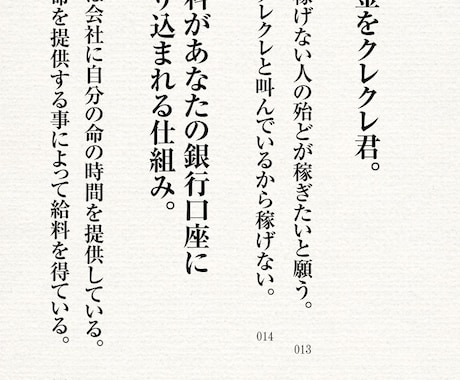 金をクレクレ君。
稼げない人の殆どが稼ぎたいと願う。
013
クレクレと叫んでいるから稼げない。
014
料があなたの銀行口座に
り込まれる仕組み。
は会社に自分の命の時間を提供している。
命を提供する事によって給料を得ている。